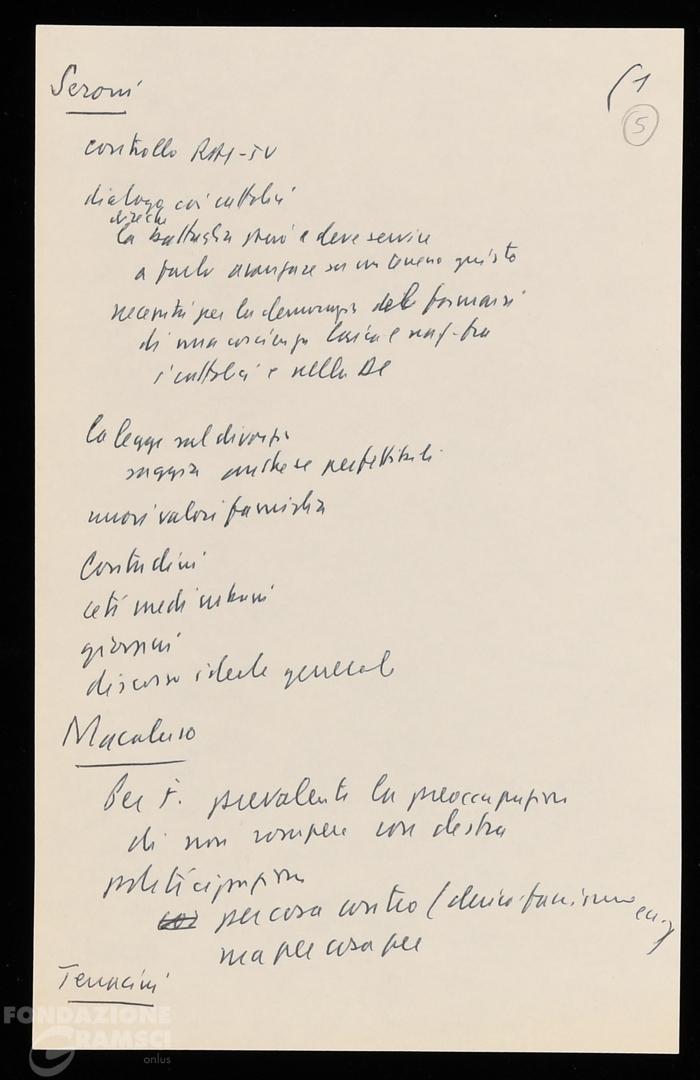 Seroni
(1
5
controllo RAI-TV
dialogo coi cattolici
anche
la battaglia può e deve servire
a farlo avanzare su un terreno giusto
necessità per la democrazia del formarsi
di una coscienza laica e tra
i cattolici e nella DC
la legge sul divorzio
saggia anche se perfettibile
nuovi valori famiglia
Contadini
ceti medi urbani
giovani
discorso ideale generale
Macaluso
Per F. prevalente la preoccupazione
di non rompere con destra
politicizzazione
per cosa contro (clerico-fascismo ecc.)
ma per cosa per
Terracini
FONDAZIONE
GRAMSCI
onlus